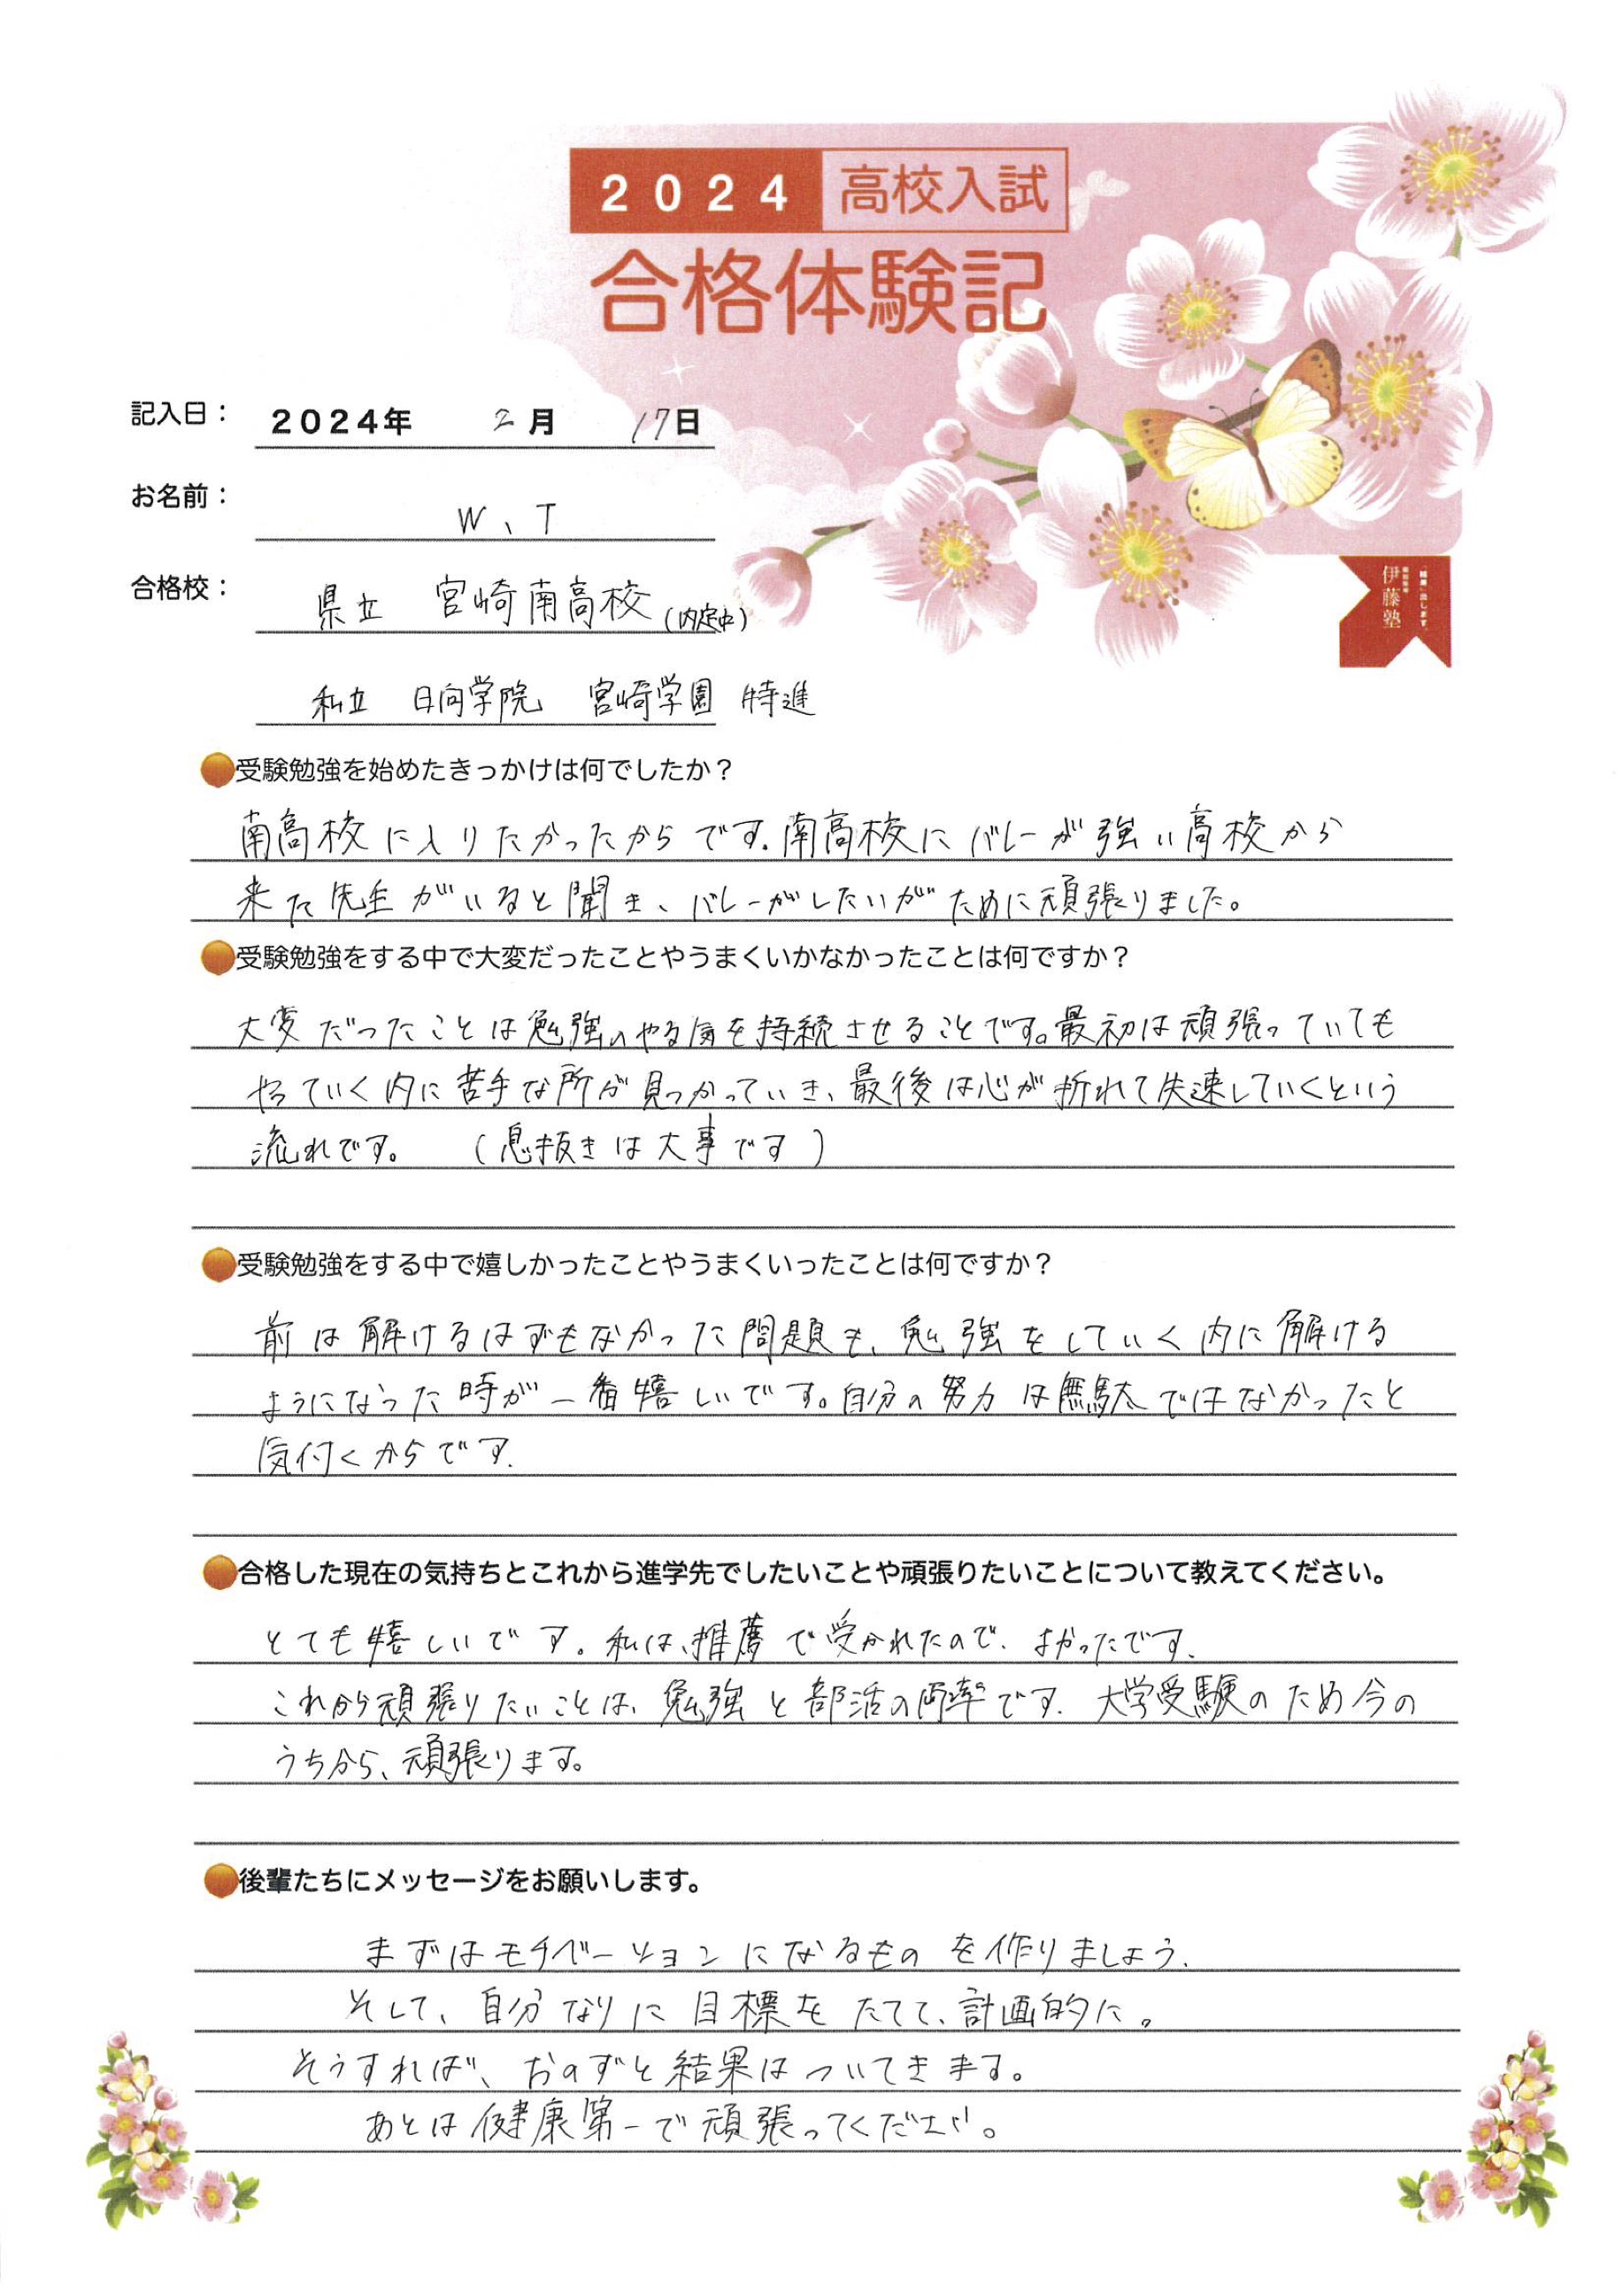 2024 高校入試
合格体験記
記入日： 2024年 2月 17日
お名前： W、T
合格校： 県立 宮崎南高校(内定中)
私立 日向学院 宮崎学園 特進
伊藤塾
受験勉強を始めたきっかけは何でしたか？
南高校に入りたかったからです。南高校にバレーが強い高校から
来た先生がいると聞き、バレーがしたいがために頑張りました。
受験勉強をする中で大変だったことやうまくいかなかったことは何ですか？
大変だったことは勉強のやる気を持続させることです。最初は頑張っていても
やっていく内に苦手な所が見つかっていき、最後は心が折れて失速していくという
流れです。 (息抜きは大事です)
受験勉強をする中で嬉しかったことやうまくいったことは何ですか？
前は解けるはずもなかった問題も、勉強をしていく内に解ける
ようになった時が一番嬉しいです。自分の努力は無駄ではなかったと
気付くからです.
合格した現在の気持ちとこれから進学先でしたいことや頑張りたいことについて教えてください。
とても嬉しいです。私は、推薦で受かれたので、よかったです.
これから頑張りたいことは、勉強と部活の両率です. 大学受験のため今の
うちから、頑張ります。
後輩たちにメッセージをお願いします。
まずはモチベーションになるものを作りましょう.
そして、自分なりに目標をたてて、計画的に。
そうすれば、おのずと結果はついてきます。
あとは健康第一で頑張ってください。